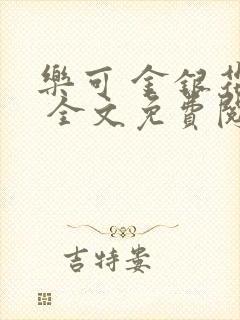 樂可 金銀花
全文免費閱
吉特婁